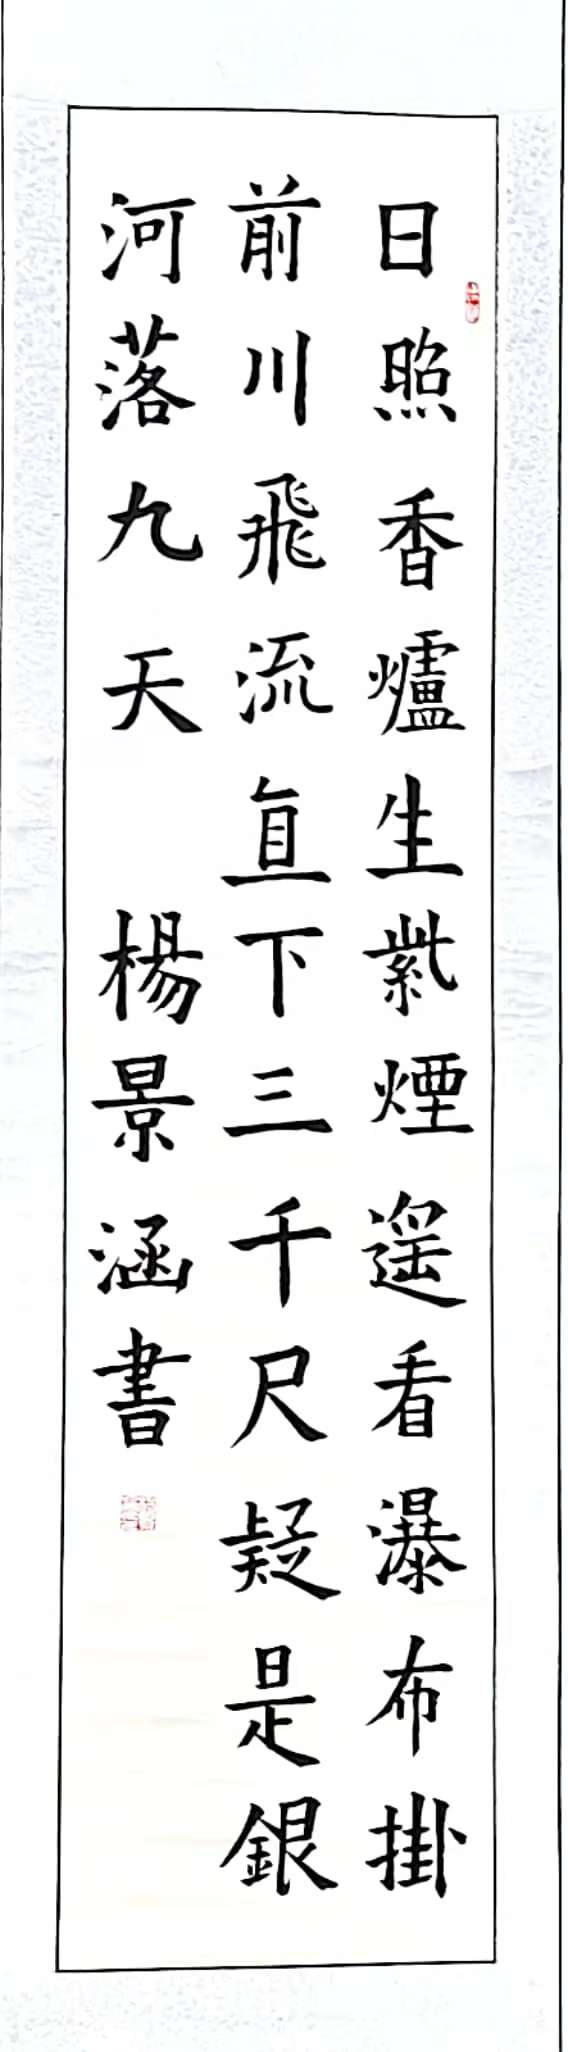 日照香爐生紫煙遥看瀑布掛
前川飛流直下三千尺疑是銀
河落九天 楊景涵書